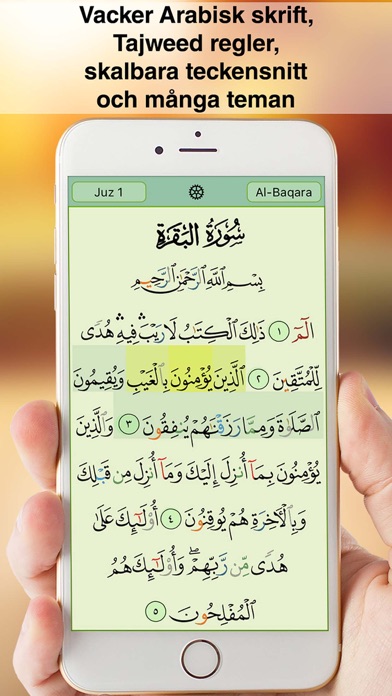 Vacker Arabisk skrift,
Tajweed regler,
skalbara teckensnitt
och många teman
Juz 1
Al-Baqara
سُورَةُ البَقَرَةِ
بِسْمِ ٱللَّهِ ٱلرَّحْمَٰنِ ٱلرَّحِيمِ
الٓمٓ ١ ذَٰلِكَ ٱلْكِتَٰبُ لَا رَيْبَ ۛ فِيهِ ۛ هُدًى
لِّلْمُتَّقِينَ ٢ ٱلَّذِينَ يُؤْمِنُونَ بِٱلْغَيْبِ وَيُقِيمُونَ
ٱلصَّلَوٰةَ وَمِمَّا رَزَقْنَٰهُمْ يُنفِقُونَ ٣ وَٱلَّذِينَ
يُؤْمِنُونَ بِمَآ أُنزِلَ إِلَيْكَ وَمَآ أُنزِلَ مِن قَبْلِكَ
وَبِٱلْأَخِرَةِ هُمْ يُوقِنُونَ ٤ أُو۟لَٰٓئِكَ عَلَىٰ
هُدًى مِّن رَّبِّهِمْ ۖ وَأُو۟لَٰٓئِكَ هُمُ
ٱلْمُفْلِحُونَ ٥